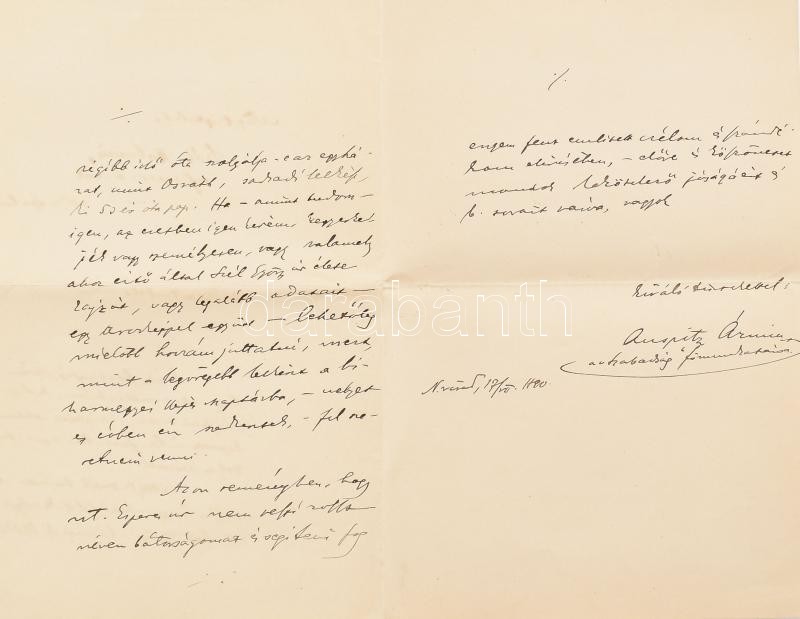 régibb idő óta szolgálja-e az egyhá-
zat, mint Osváth, szakadi lelkész,
ki 53 év óta pap. Ha – amint tudom –
igen, az esetben igen kérem kegyesked-
jék vagy személyesen, vagy valamely
ahoz értő által Szél György úr élete
rajzát, vagy legalább adatait –
egy arcképpel együtt – lehetőleg
mielőbb hozzám juttatni, mert,
mint a legöregebb lelkészt a bi-
harmegyei képes naptárba, – melyet
ez évben én szerkesztek, – fel sze-
retném venni.
Azon reményben, hogy
nt. Esperes úr nem veszi rossz
néven bátorságomat és segíteni fog
engem fent említett célom és szándé-
kom elérésében, – előre is köszönetet
mondok lekötelező jóságáért és
b. sorait várva, vagyok
kiváló tisztelettel:
Auspitz Ármin
a „Szabadság" főmunkatársa.
Nvárad, 1890.
darabanth